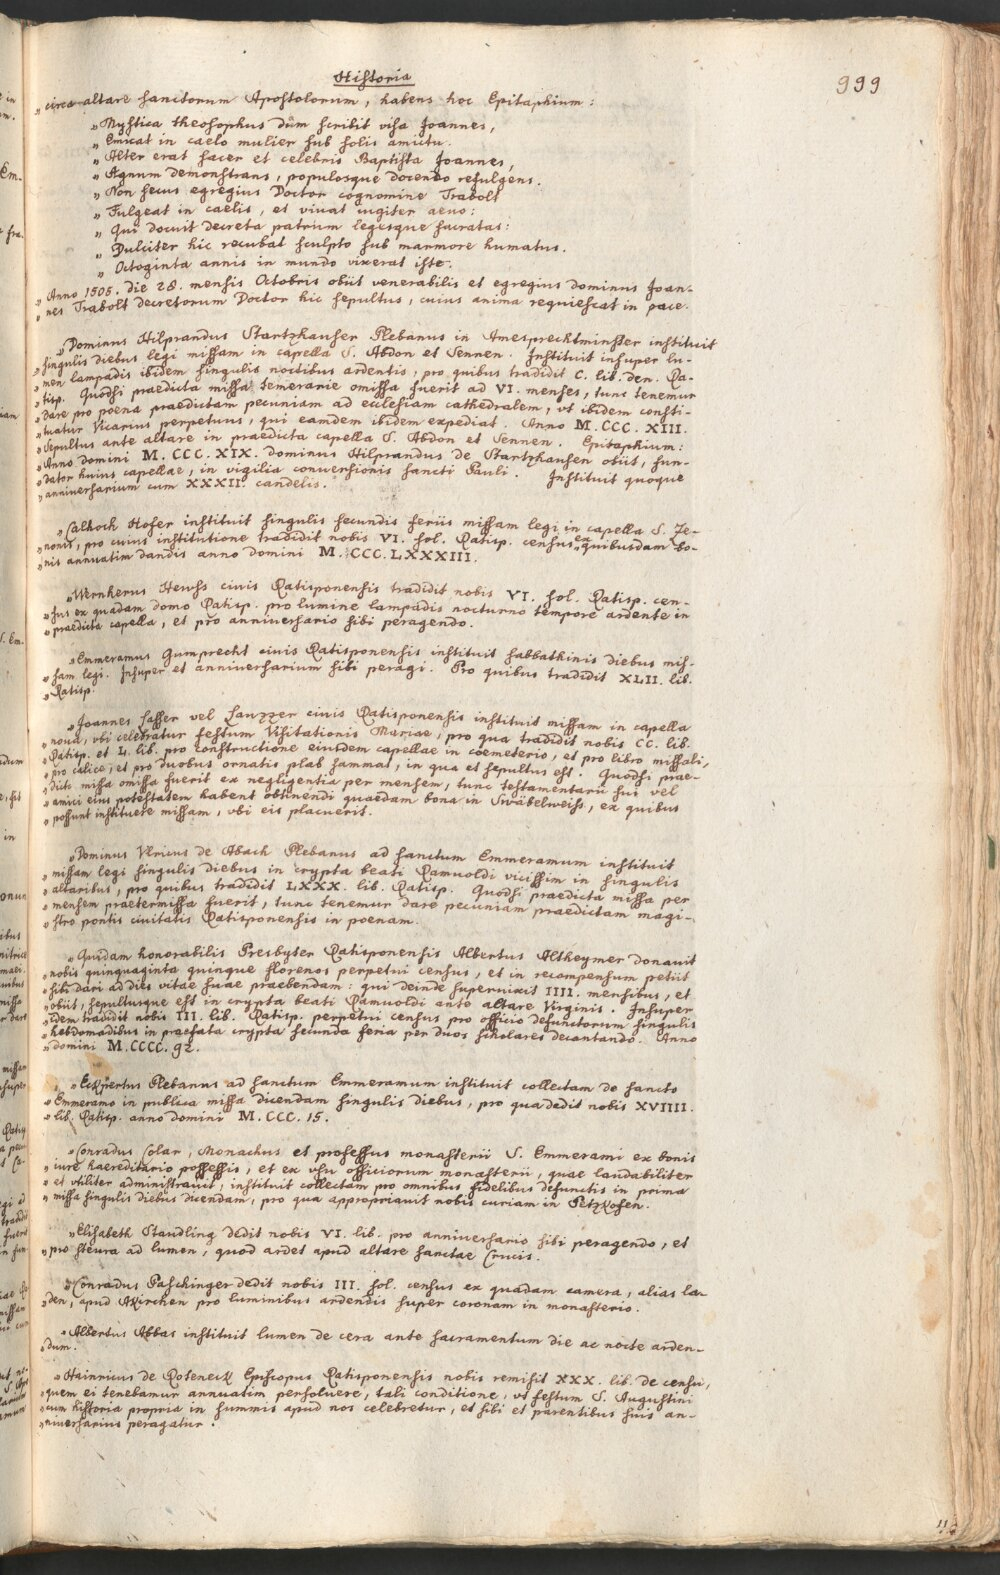 Historia
999
„ circa altare sanctorum Apostolorum, habens hoc Epitaphium:
„ Mystica theosophus dum scribit visa Joannes,
„ Emicat in caelo mulier sub solis amictu.
„ Alter erat sacer et celebris Baptista Joannes,
„ Agnum demonstrans, populosque docendo refulgens.
„ Non secus egregius Doctor cognomine Trabolt
„ Fulgeat in caelis, et vivat iugiter aeuo:
„ Qui docuit decreta patrum legesque sacratas:
„ Dulciter hic recubat sculpto sub marmore humatus.
„ Octoginta annis in mundo vixerat iste.
„ Anno 1505. die 28. mensis Octobris obiit venerabilis et egregius dominus Joan-
„ nes Trabolt decretorum Doctor hic sepultus, cuius anima requiescat in pace.
„ Dominus Hilprandus Startzhauser Plebanus in Amesprechtminster instituit
„ singulis diebus legi missam in capella S. Abdon et Sennen. Instituit insuper lu-
„ men lampadis ibidem singulis noctibus ardentis, pro quibus tradidit C. lib. den. Ra-
„ tisp. Quodsi praedicta missa temerarie omissa fuerit ad VI. menses, tunc tenemur
„ dare pro poena praedictam pecuniam ad ecclesiam cathedralem, vt ibidem consti-
„ tuatur Vicarius perpetuus, qui eamdem ibidem expediat. Anno M. CCC. XIII.
„ Sepultus ante altare in praedicta capella S. Abdon et Sennen. Epitaphium:
„ Anno domini M. CCC. XIX. dominus Hilprandus de Startzhausen obiit, fun-
„ dator huius capellae, in vigilia conversionis sancti Pauli. Instituit quoque
„ anniversarium cum XXXII. candelis.
„ Calhoch Hofer instituit singulis secundis feriis missam legi in capella S. Ze-
„ nonis, pro cuius institutione tradidit nobis VI. sol. Ratisp. census ex quibusdam bo-
„ nis annuatim dandis anno domini M. CCC. LXXXIII.
„ Wernherus Hewss civis Ratisponensis tradidit nobis VI. sol. Ratisp. cen-
„ sus ex quadam domo Ratisp. pro lumine lampadis nocturno tempore ardente in
„ praedicta capella, et pro anniversario sibi peragendo.
„ Emmeramus Gumprecht civis Ratisponensis instituit sabbathinis diebus mis-
„ sam legi. Insuper et anniversarium sibi peragi. Pro quibus tradidit XLII. lib.
„ Ratisp.
„ Joannes Saller vel Lanzzer civis Ratisponensis instituit missam in capella
„ noua, vbi celebratur festum Visitationis Mariae, pro qua tradidit nobis CC. lib.
„ Ratisp. et L. lib. pro constructione eiusdem capellae in coemeterio, et pro libro missali,
„ pro calice, et pro duobus ornatis plab sammat, in qua et sepultus est. Quodsi prae-
„ dicta missa omissa fuerit ex negligentia per mensem, tunc testamentarii sui vel
„ amici eius potestatem habent obtinendi quaedam bona in Swäbelweiss, ex quibus
„ possunt instituere missam, vbi eis placuerit.
„ Dominus Vlricus de Abach Plebanus ad sanctum Emmeramum instituit
„ missam legi singulis diebus in crypta beati Ramuoldi vicissim in singulis
„ altaribus, pro quibus tradidit LXXX. lib. Ratisp. Quodsi praedicta missa per
„ mensem praetermissa fuerit, tunc tenemur dare pecuniam praedictam magi-
„ stro pontis civitatis Ratisponensis in poenam.
„ Quidam honorabilis Presbyter Ratisponensis Albertus Altheymer donauit
„ nobis quinquaginta quinque florenos perpetui census, et in recompensum petiit
„ sibi dari ad dies vitae suae praebendam: qui deinde supervixit IIII. mensibus, et
„ obiit, sepultusque est in crypta beati Ramuoldi ante altare Virginis. Insuper
„ idem tradidit nobis III. lib. Ratisp. perpetui census pro officio defunctorum singulis
„ hebdomadibus in praefata crypta secunda feria per duos scholares decantando. Anno
„ domini M. CCCC. 92.
„ Eckpertus Plebanus ad sanctum Emmeramum instituit collectam de sancto
„ Emmeramo in publica missa dicendam singulis diebus, pro qua dedit nobis XVIIII.
„ lib. Ratisp. anno domini M. CCC. 15.
„ Conradus Colar, Monachus et professus monasterii S. Emmerami ex bonis
„ iure haereditario possessis, et ex vsu officiorum monasterii, quae laudabiliter
„ et vtiliter administrauit, instituit collectam pro omnibus fidelibus defunctis in prima
„ missa singulis diebus dicendam, pro qua appropriauit nobis curiam in Petzkofen.
„ Elisabeth Staudling dedit nobis VI. lib. pro anniversario sibi peragendo, et
„ pro steura ad lumen, quod ardet apud altare sanctae Crucis.
„ Conradus Paschinger dedit nobis III. sol. census ex quadam camera, alias la-
„ den, apud Akirchen pro luminibus ardendis super coronam in monasterio.
„ Albertus Abbas instituit lumen de cera ante sacramentum die ac nocte arden-
„ dum.
„ Hainricus de Roteneck Episcopus Ratisponensis nobis remisit XXX. lib. de censu,
„ quem ei tenebamur annuatim persoluere, tali conditione, vt festum S. Augustini
„ cum historia propria in summis apud nos celebretur, et sibi et parentibus suis an-
„ niversarius peragatur.